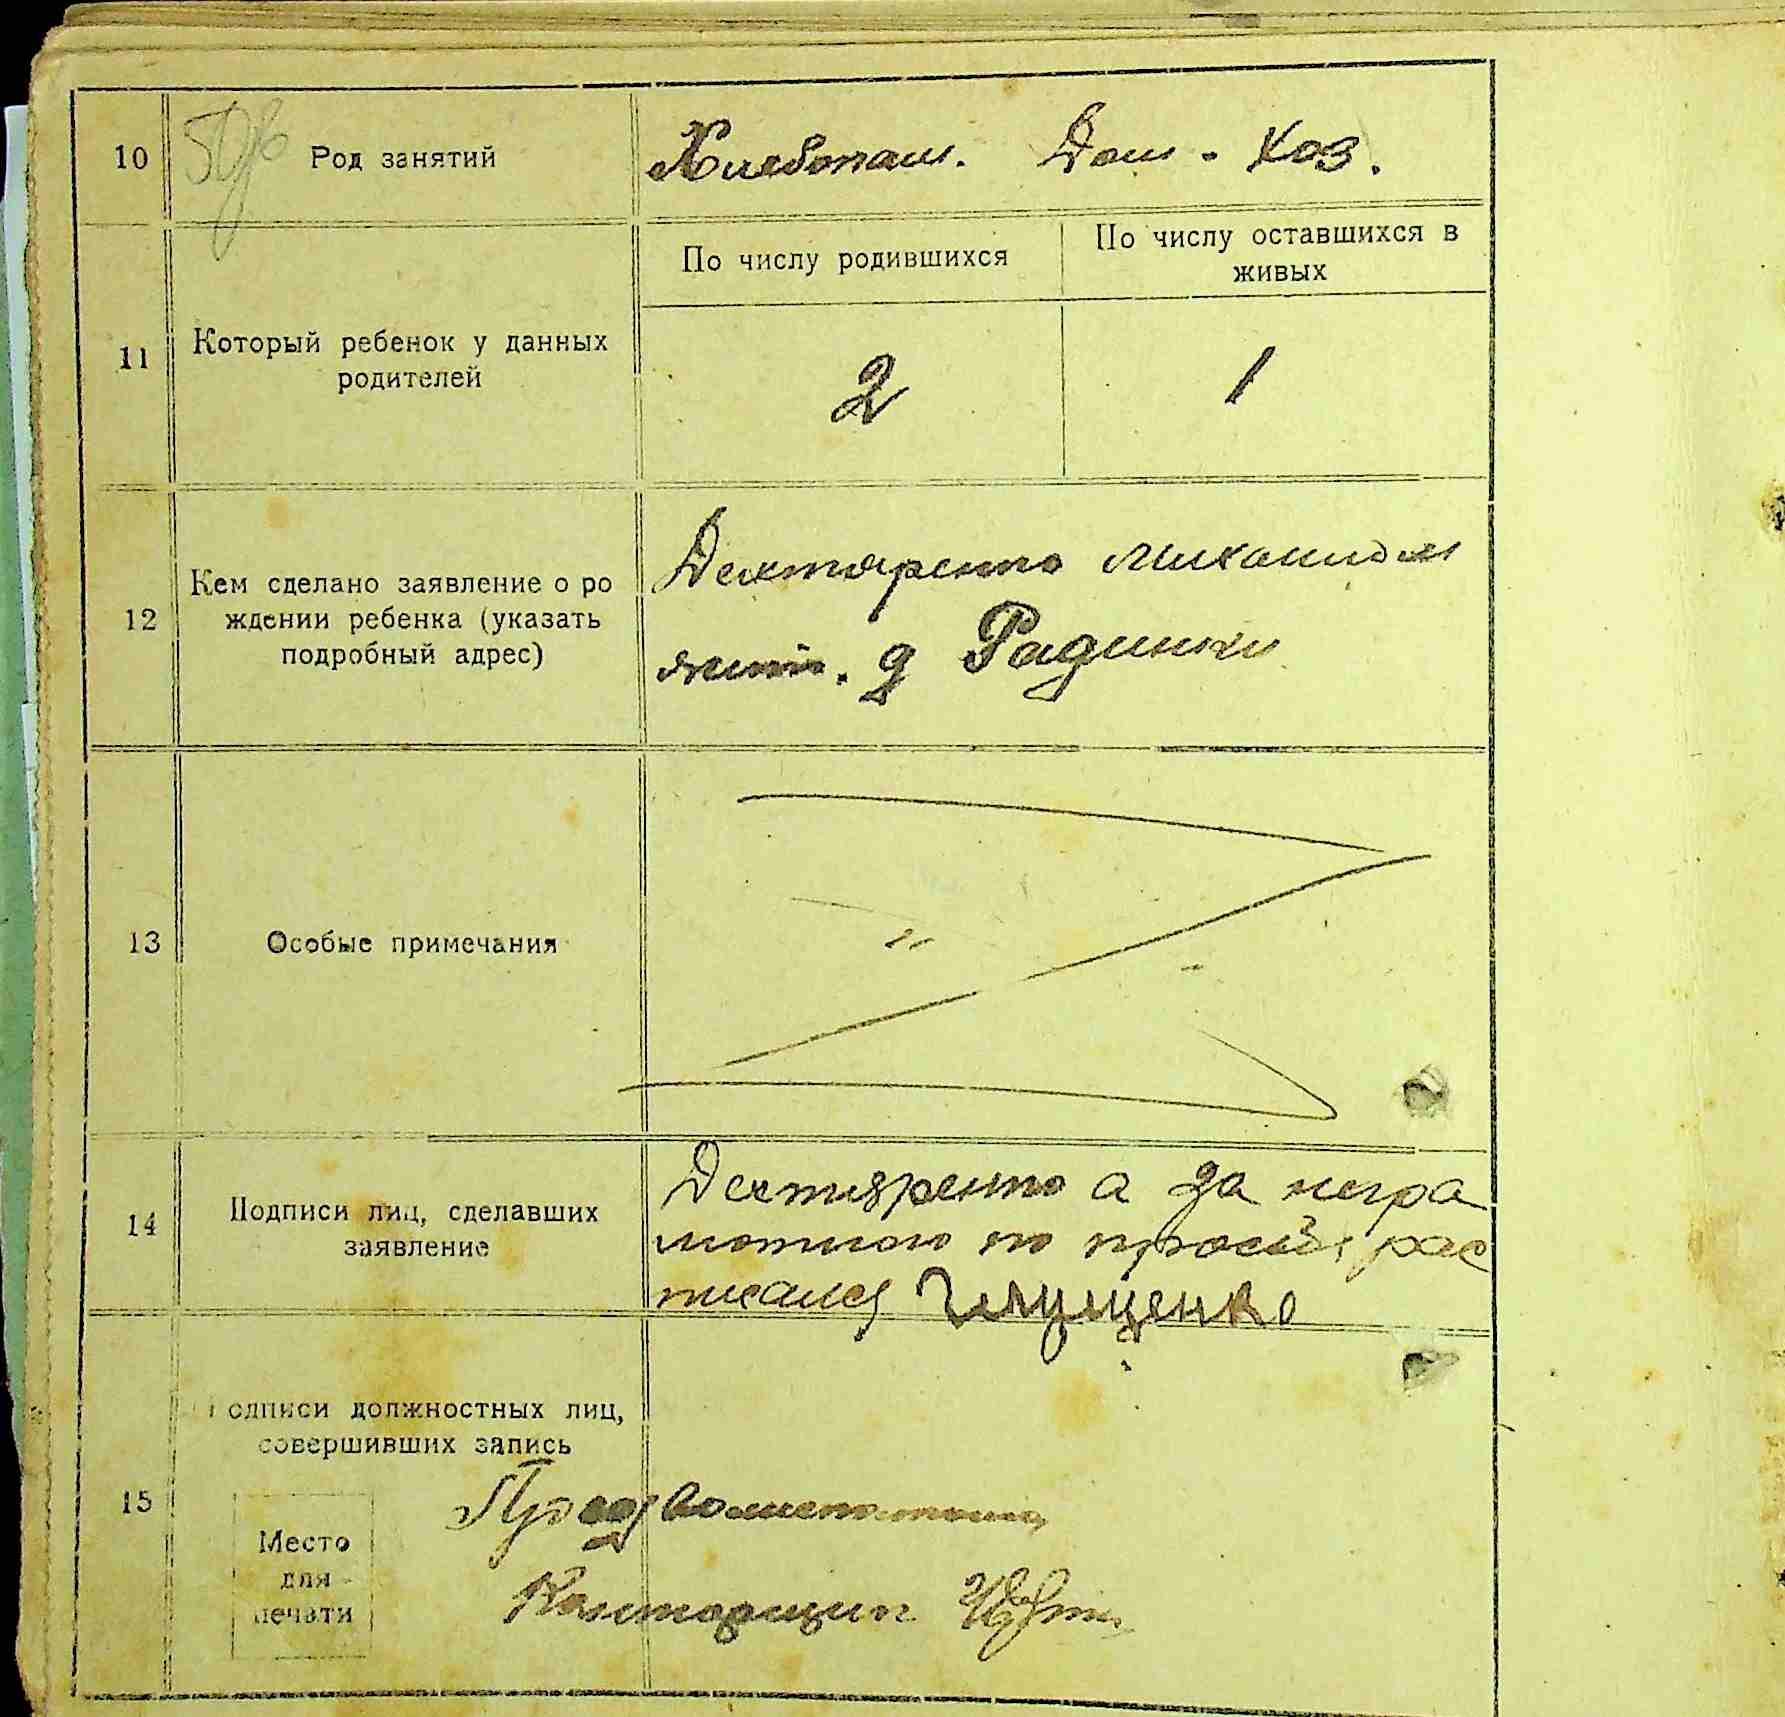 10 Род занятий Хлебопаш. Дом - Хоз.
По числу родившихся
По числу оставшихся в
живых
11 Который ребенок у данных
родителей
2 1
12 Кем сделано заявление о ро
ждении ребенка (указать
подробный адрес)
Дехтяренко Михаилом
жит. д Радинки
13 Особые примечания
14 Подписи лиц, сделавших
заявление
Дехтяренко а за негра
мотного по просьбе рас
писался Глущенко
15 Подписи должностных лиц,
совершивших запись
Место
для
печати
Пред
Конторщик